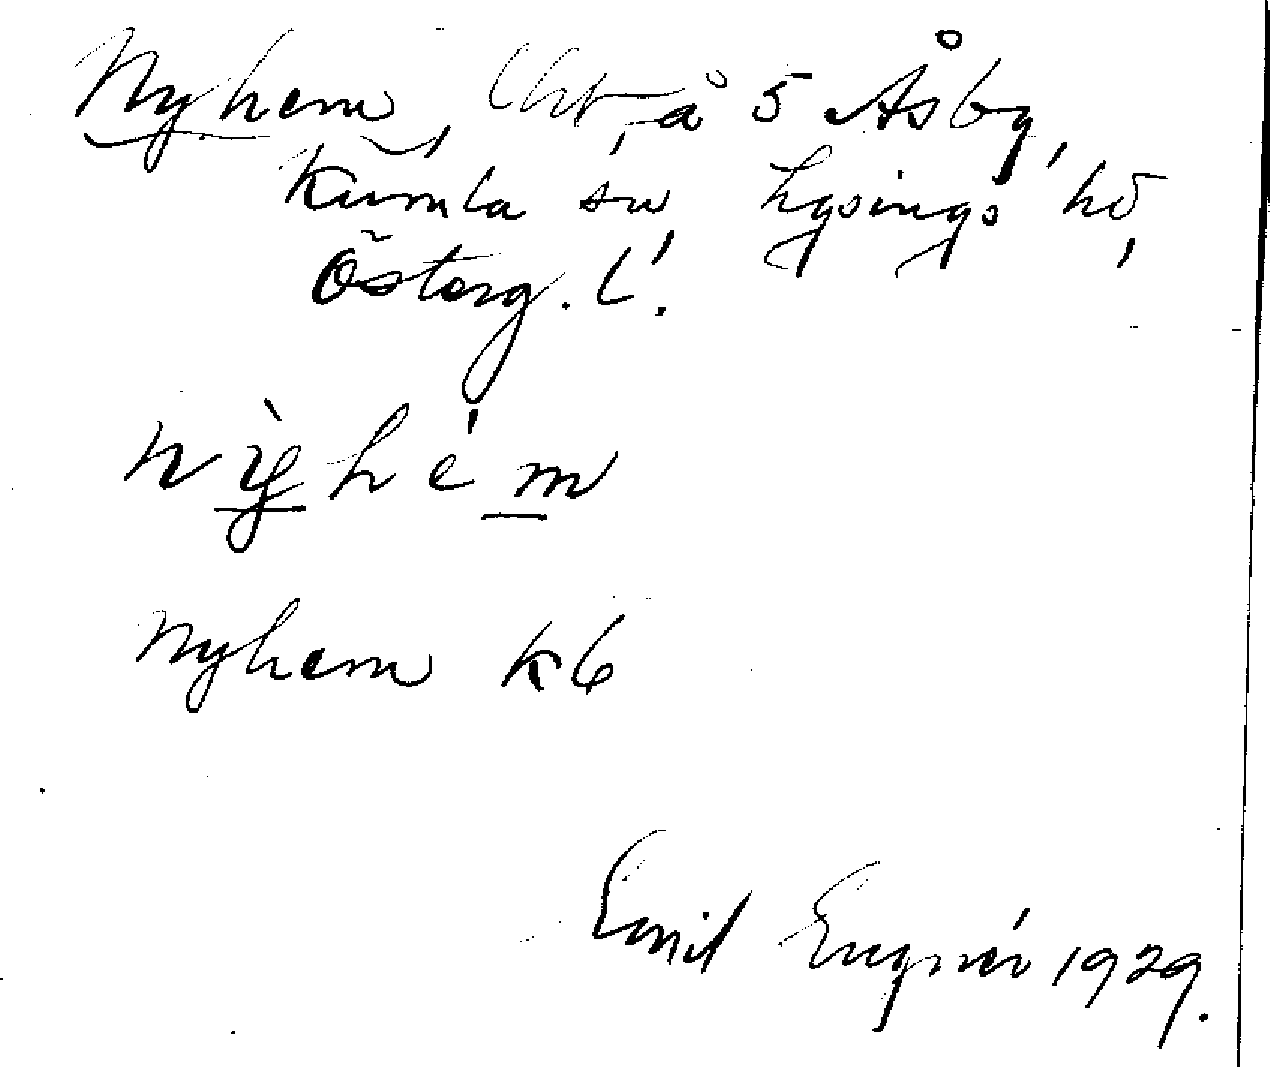 Nyhem, lht, å 5 Åsby,
Kumla sn Lysings hd,
Österg. L.
nỳhém
Nyhem K6
Emil Engnér 1929.